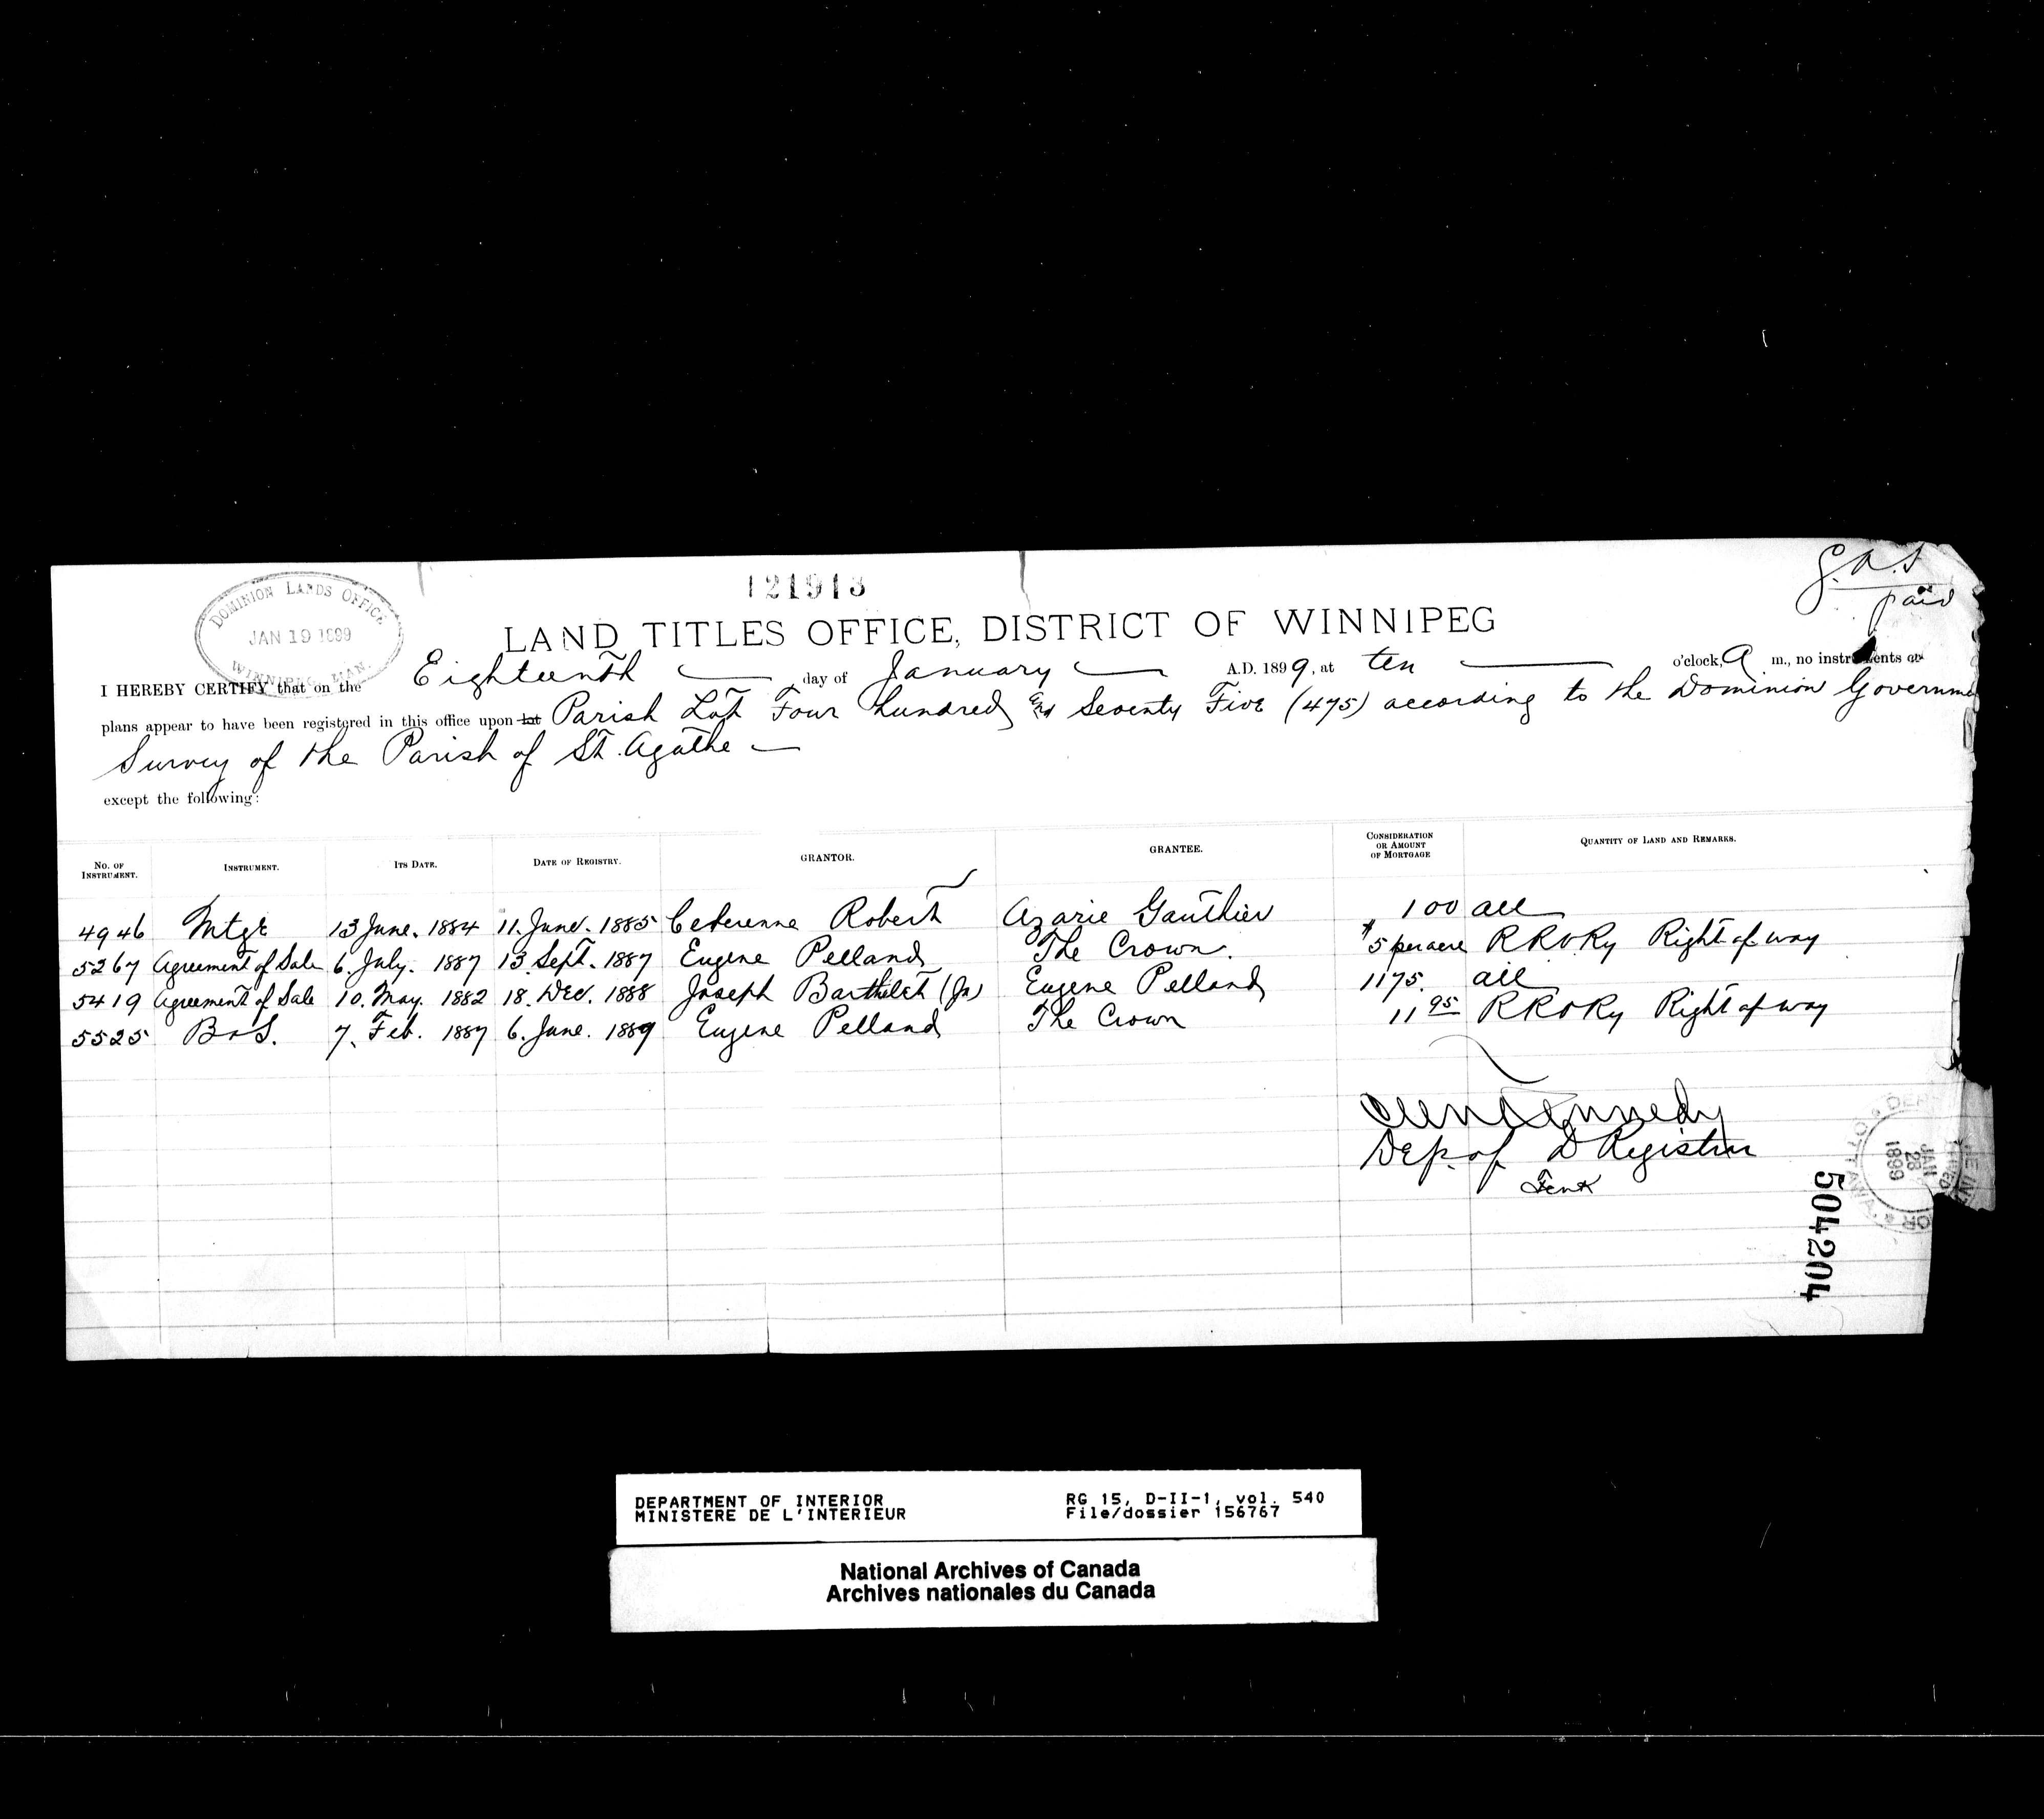 DOMINION LANDS OFFICE
JAN 19 1899
WINNIPEG, MAN.
121913
paid
LAND TITLES OFFICE, DISTRICT OF WINNIPEG
I HEREBY CERTIFY that on the Eighteenth day of January A.D. 1899, at ten o'clock, A m., no instruments or
plans appear to have been registered in this office upon lot Parish Lot Four hundred and Seventy Five (475) according to the Dominion Governme
Survey of the Parish of St. Agathe
except the following:
No. of Instrument. Instrument. Its Date. Date of Registry. Grantor. Grantee. Consideration or Amount of Mortgage Quantity of Land and Remarks.
4946 Mtge 13 June. 1884 11. June. 1885 Robert Azarie Gauthier 100 all
5267 Agreement of Sale 6. July. 1887 13. Sept. 1887 Eugene Pelland The Crown. $5 per acre RRVRy Right of way
5419 Agreement of Sale 10. May. 1882 18. Dec. 1888 Joseph Barthelet (Jr) Eugene Pelland 1175. all
5525 B&S. 7. Feb. 1887 6. June. 1889 Eugene Pelland The Crown 11 95 RRVRy Right of way
Kennedy
Dep. of D Registrar
JAN 28 1899
OTTAWA
504204
DEPARTMENT OF INTERIOR RG 15, D-II-1, vol. 540
MINISTERE DE L'INTERIEUR File/dossier 156767
National Archives of Canada
Archives nationales du Canada